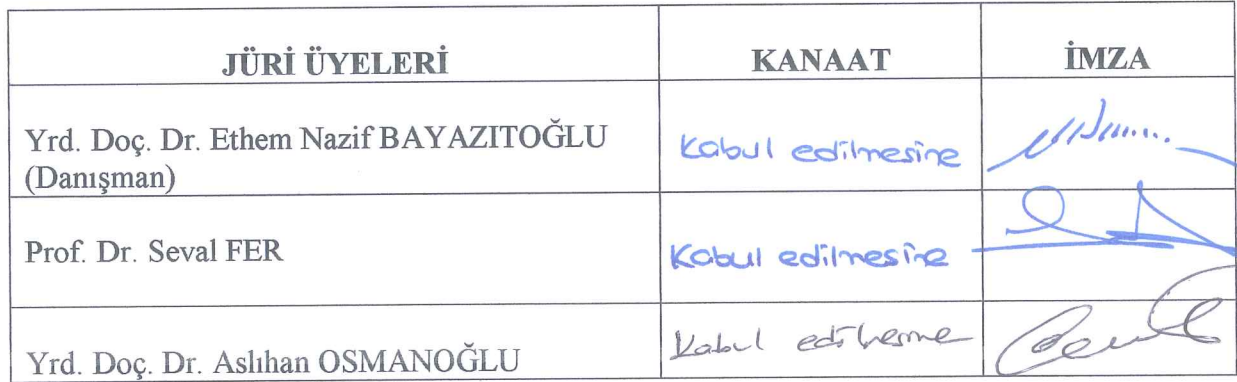 JÜRİ ÜYELERİ KANAAT İMZA
Yrd. Doç. Dr. Ethem Nazif BAYAZITOĞLU
(Danışman)
Kabul edilmesine
Prof. Dr. Seval FER
Kabul edilmesine
Yrd. Doç. Dr. Aslıhan OSMANOĞLU
Kabul